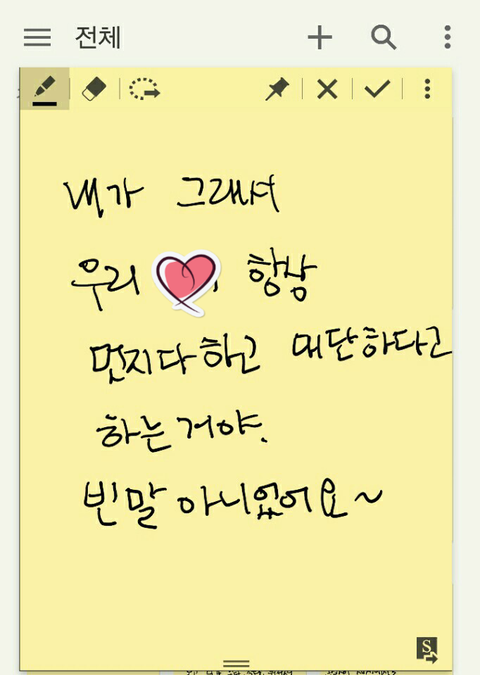 전체
내가 그래서
우리 항상
멋지다하고 대단하다고
하는거야.
빈말 아니없어요~